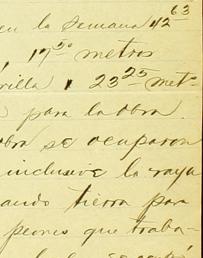 en la semana 12 63
, 17 50 metros
rilla , 23 25 met-
para la obra
obra se ocuparon
inclusive la raya
ando tierra para
peones que traba-